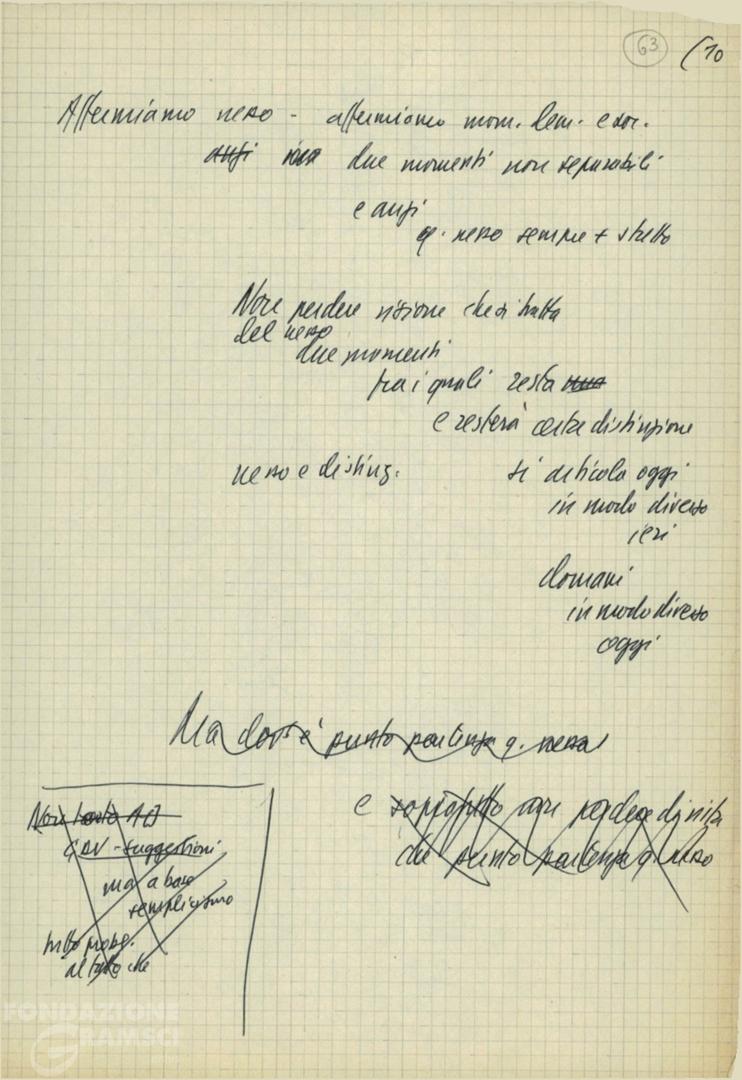 63 (10
Affermiamo nesso - affermiamo mom. dem. e soc.
anzi due momenti non separabili
e anzi
q. nesso sempre + stretto
Non perdere visione che si tratta
del nesso
due momenti
tra i quali resta
e resterà certa distinzione
nesso e disting. si articola oggi
in modo diverso
ieri
domani
in modo diverso
oggi
Ma dov'è punto partenza q. nesso
e soprattutto non perdere di vista
che punto partenza q. nesso
Non tanto
GAV - suggestioni
ma a base
semplicismo
tutto probl.
che
FONDAZIONE
GRAMSCI